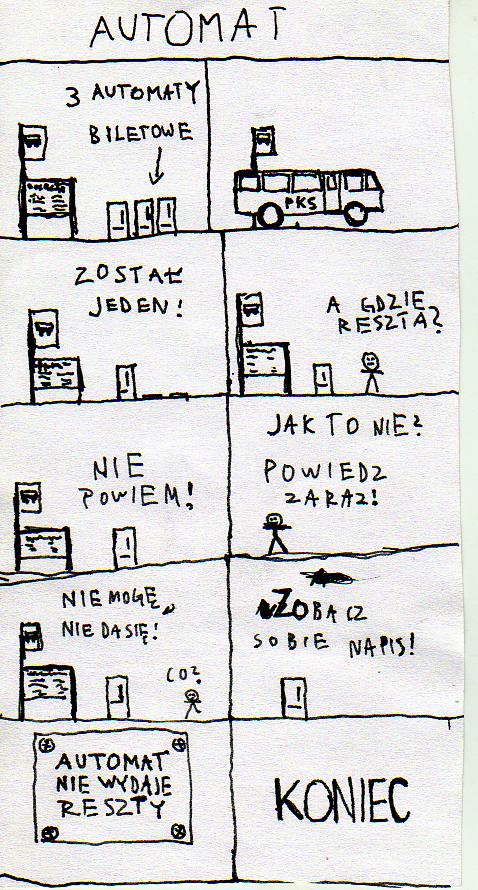 AUTOMAT
3 AUTOMATY
BILETOWE
PKS
ZOSTAŁ
JEDEN!
A GDZIE
RESZTA?
NIE
POWIEM!
JAK TO NIE?
POWIEDZ
ZARAZ!
NIE MOGĘ,
NIE DA SIĘ!
CO?
ZOBACZ
SOBIE NAPIS!
AUTOMAT
NIE WYDAJE
RESZTY
KONIEC